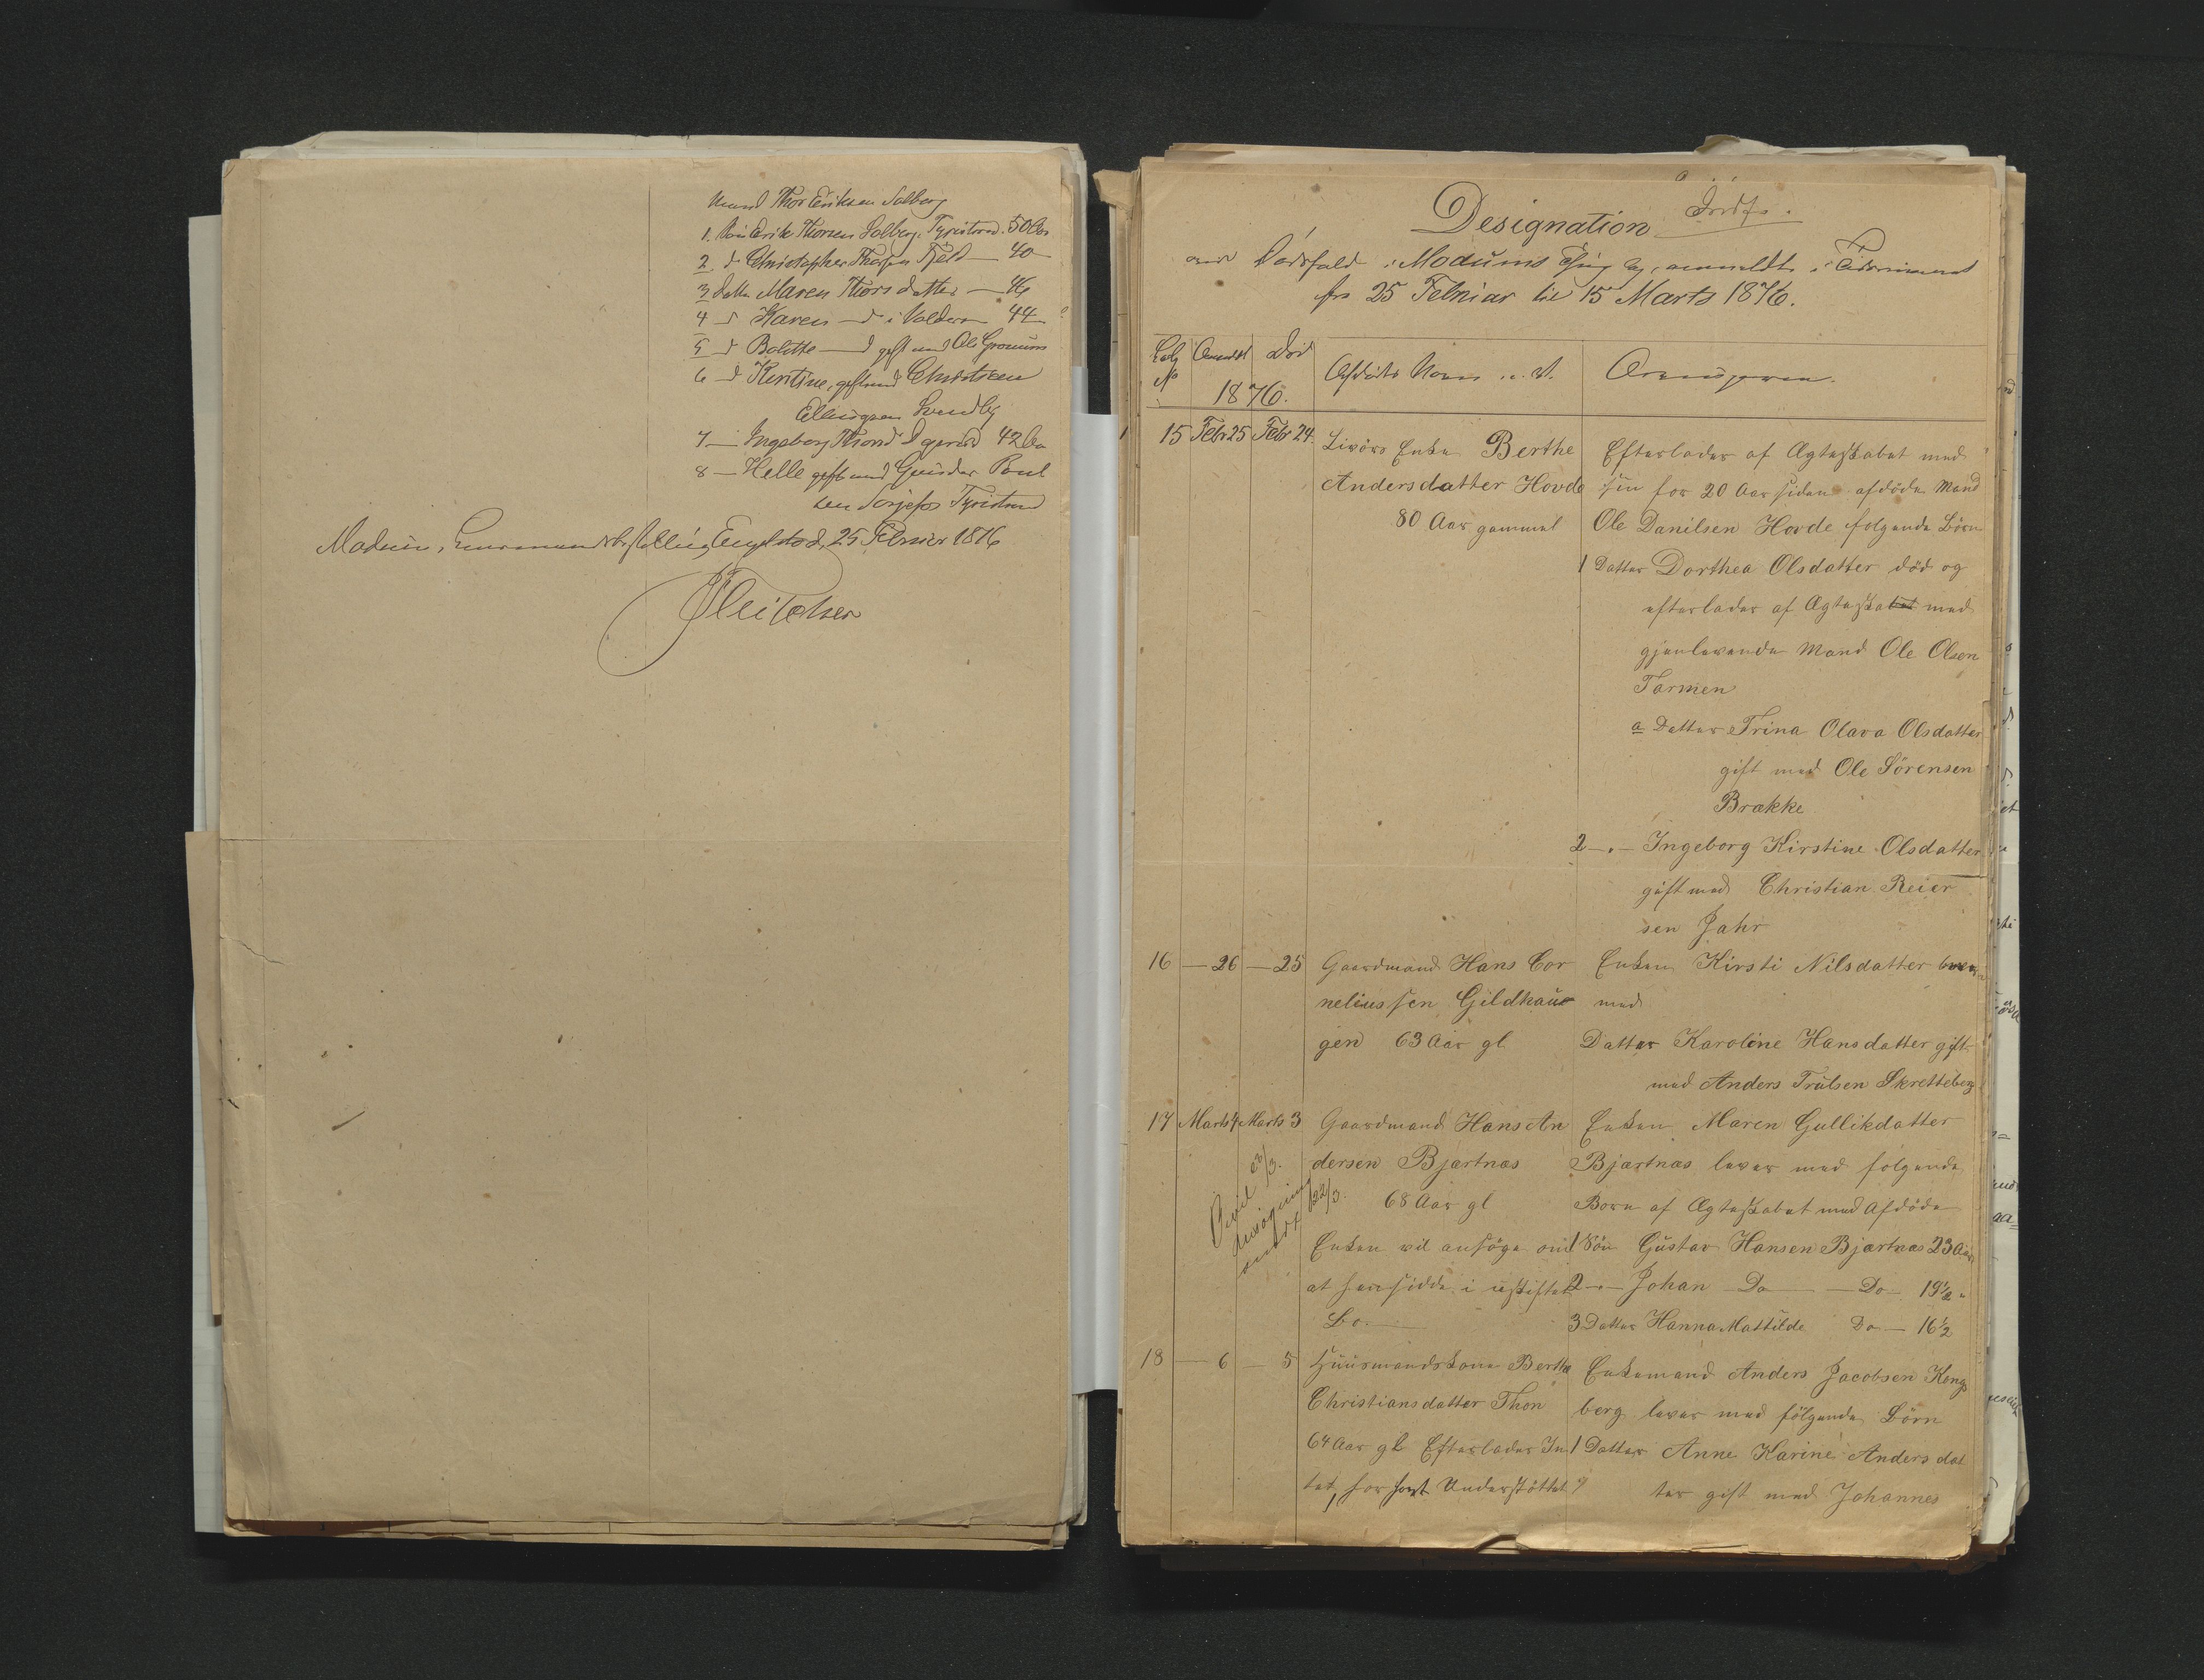 Mand Thor Eriksen Solberg
1. Søn Erik Thorsen Solberg, Tyristrand. 50 Aar
2. d Christopher Thorsen Fjeld — 40 —
3 Datter Maren Thorsdatter — 46
4 d Karen — d i Valders 44
5 d Bolette — d gift med Ole Gronum
6 d Kirstine, gift med Christian
Ellingsen Svendby
7 — Ingeborg Thorsd. 42 Aar
8 — Helle gift med Gunder Paul
sen Tyristrand
Modum, Lensmandsbestilling, 25 Februar 1876
Designation
over Dødsfald i Modums Thinglag, anmeldte i Tidsrummet
fra 25 Februar til 15 Marts 1876.
Løb No Anmeldt Død Afdødes Navn o.s.v. Arvingerne.
1876.
15 Febr 25 Febr 24. Livørs Enke Berthe Efterlader af Ægteskabet med
Andersdatter Hovde sin for 20 Aar siden afdøde Mand
80 Aar gammel Ole Danilsen Hovde følgende Børn
1 Datter Dorthea Olsdatter død og
efterlader af Ægteskabet med
gjenlevende Mand Ole Olsen
Tarmen
a Datter Trina Olava Olsdatter
gift med Ole Sörensen
Brække
2 —„— Ingeborg Kirstine Olsdatter
gift med Christian Reier
sen Jahr
16 — 26 — 25 Gaardmand Hans Cor Enken Kirsti Nilsdatter
neliussen Gildhau med
gen 63 Aar gl. Datter Karoline Hansdatter gift
med Anders Trulsen Skretteberg
17 Marts 4 Marts 3 Gaardmand Hans An Enken Maren Gullikdatter
dersen Bjartnæs Bjartnæs lever med følgende
68 Aar gl Børn af Ægteskabet med Afdøde
Enken vil ansøge om 1 Søn Gustav Hansen Bjartnæs 23 Aar
at hensidde i uskiftet 2 —„— Johan Do — Do — 19½ "
Bo. 3 Datter Hanna Mattilde Do — 16½
23/3.
22/3.
18 — 6 — 5 Huusmandskone Berthe Enkemand Anders Jacobsen Kongs
Christiansdatter Thon berg lever med følgende Börn
64 Aar gl Efterlader In 1 Datter Anne Karine Andersdat
tet, har havt Understøttelse ter gift med Johannes